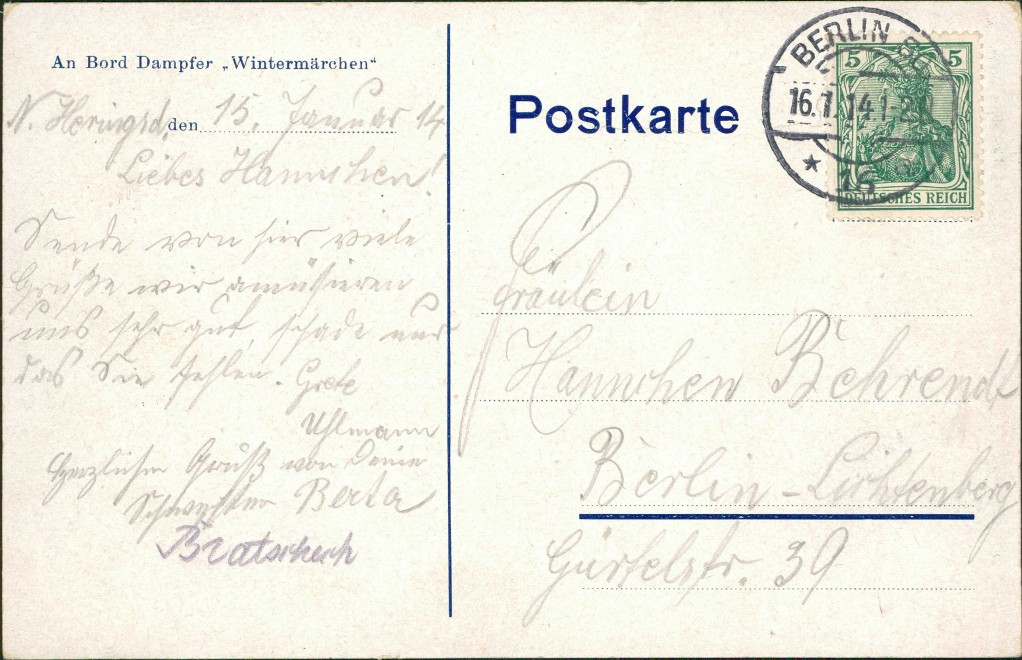 An Bord Dampfer „Wintermärchen“
N. Heringsd, den 15. Januar 14
Liebes Hannchen!
Sende von hier viele
Grüße wir amüsieren
uns sehr gut, schade nur
das Sie fehlen. Grete
Uhlmann
Herzlichen Gruß von Deine
Schwester Berta
Bratscheck
Postkarte
BERLIN SO
16.1.14.1-2
* 16
5 5
DEUTSCHES REICH
Fräulein
Hannchen Behrendt
Berlin-Lichtenberg
Gürtelstr. 39